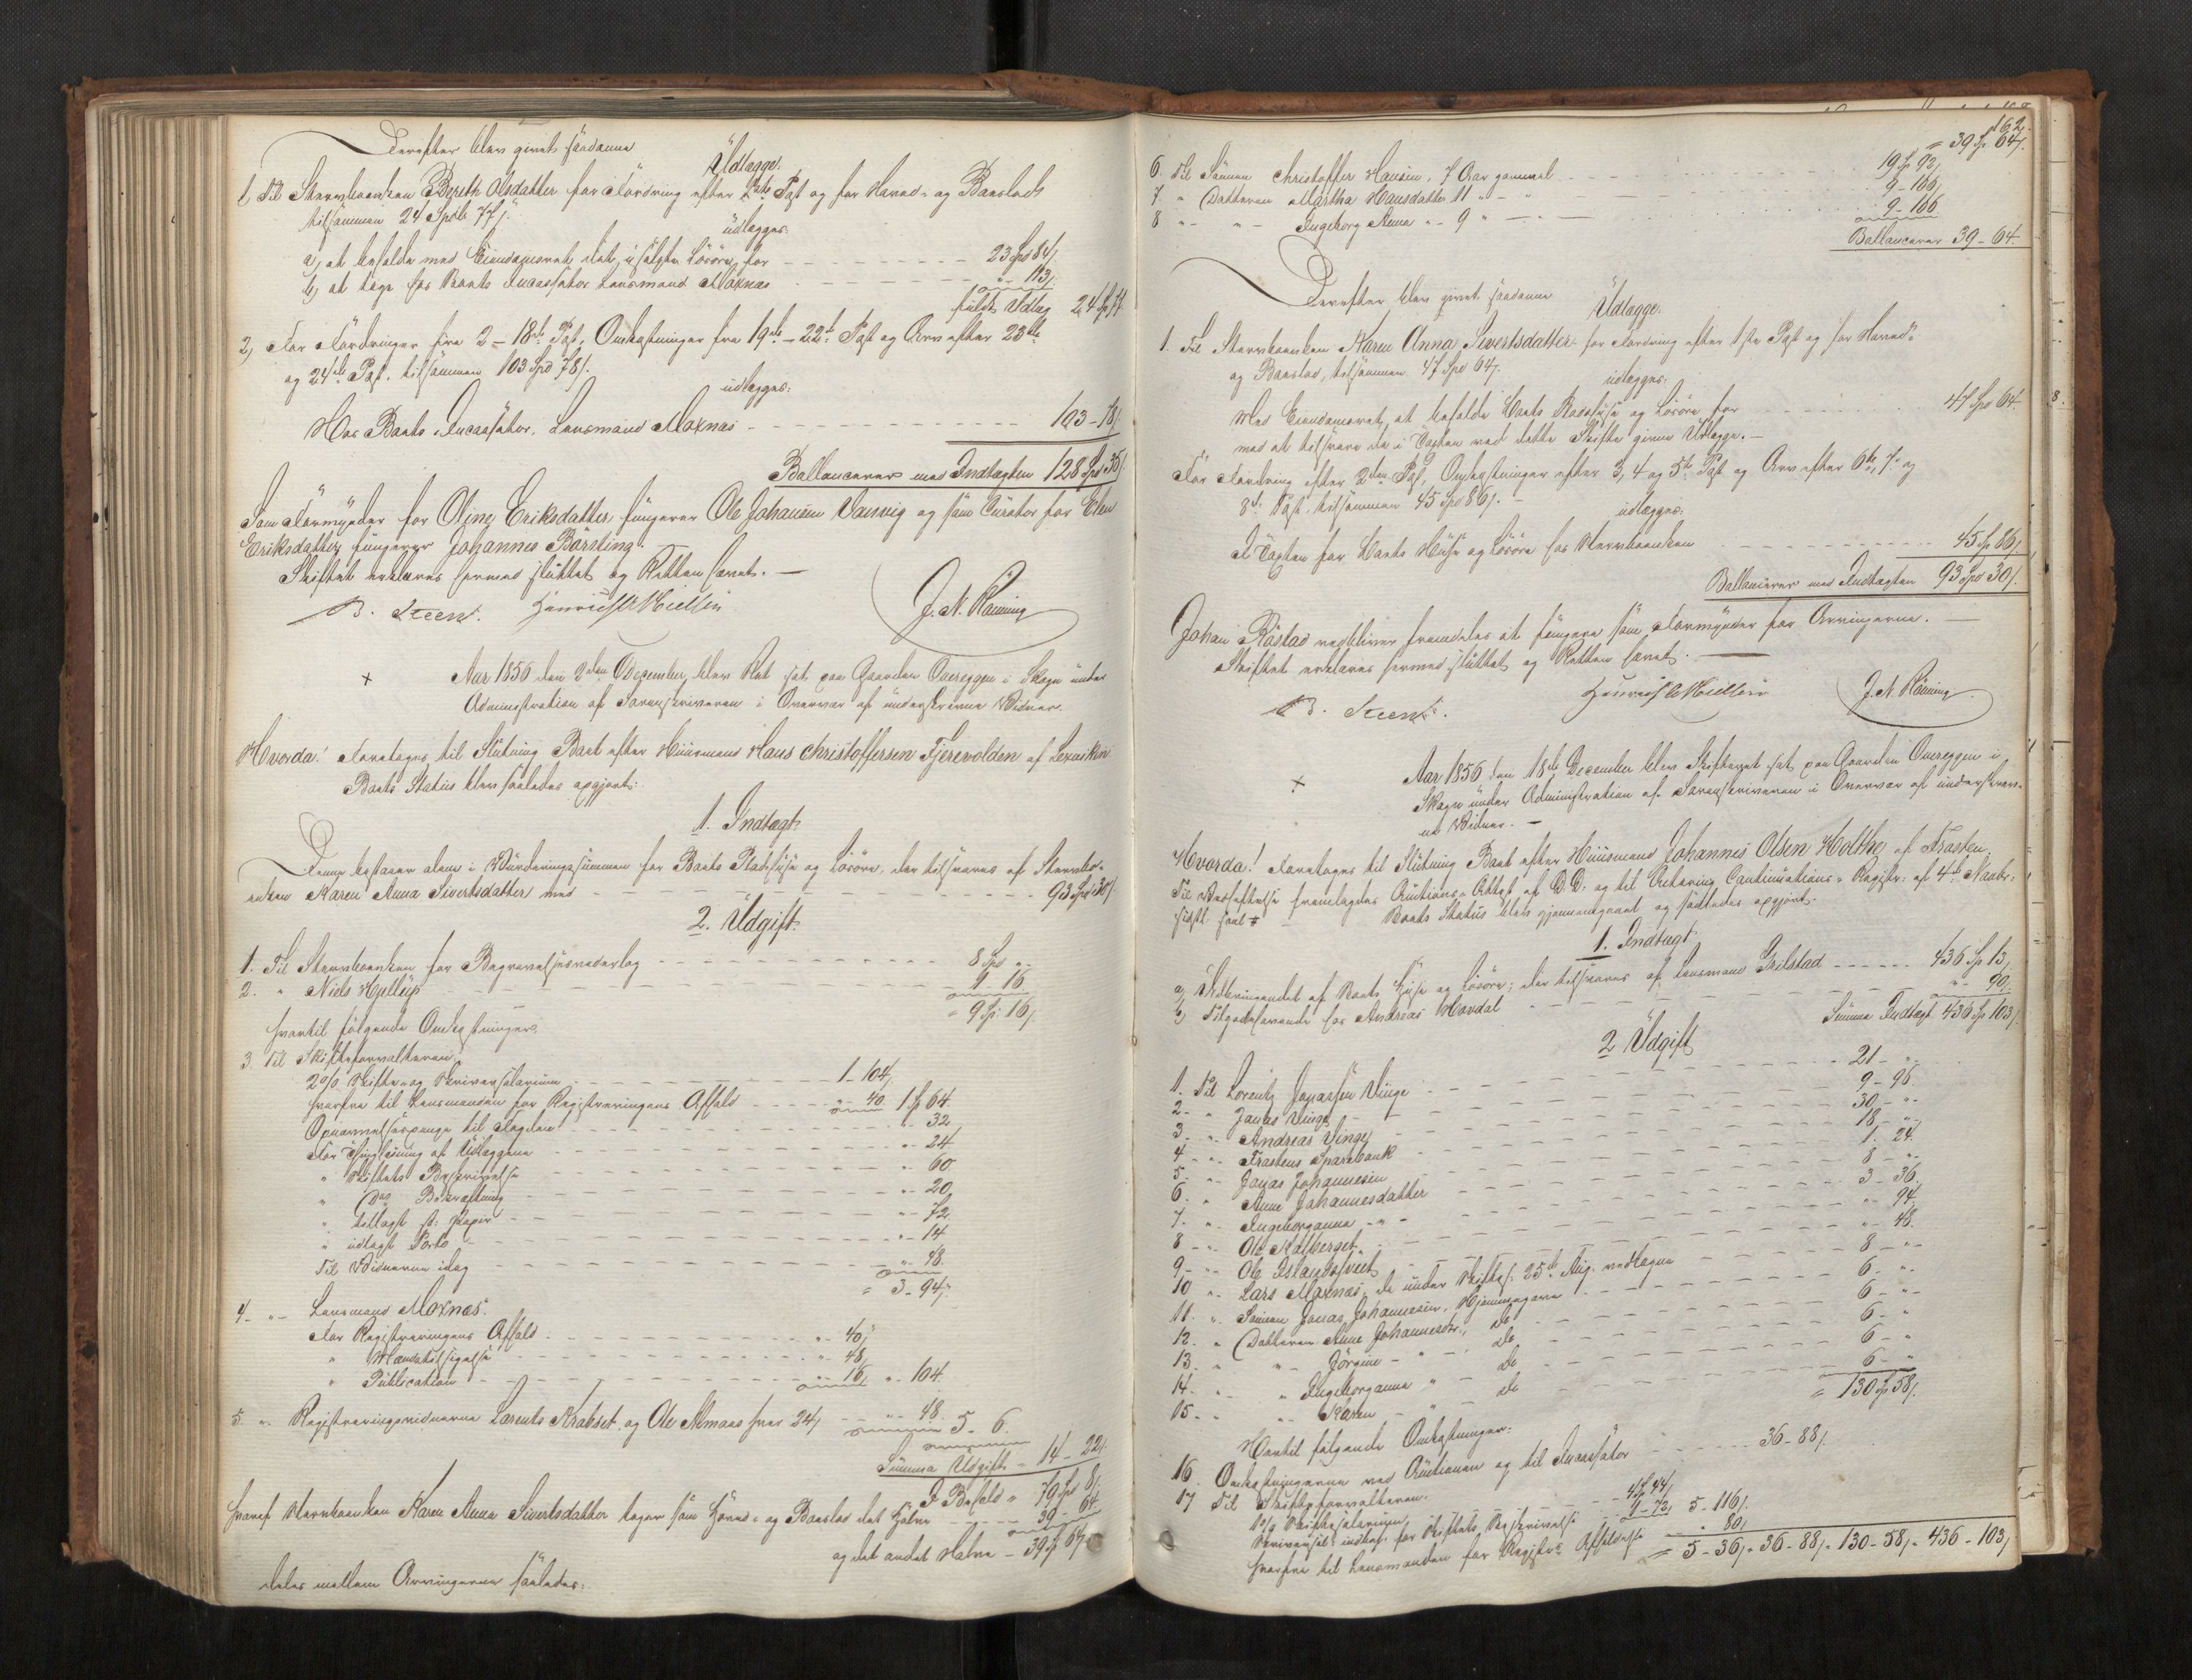 Derefter blev givet saadanne
Udlægge.
1, Til Stervboenken Bereth Olsdatter for Fordring efter 1ste Post og for Hoved- og Boeslods
tilsammen 24 Spd 77 ß.
udlægges:
a, at beholde med Eiendomsret det usolgte Løsøre for 23 Spd 84 ß
b, at tage hos Boets Incassator Lensmand Moxnæs " 113 ß
fuldt Udlæg 24 Sp 77
2, For Fordringer fra 2 - 18de Post, Omkostninger fra 19de - 22de Post og Arv efter 23de
og 24de Post, tilsammen 103 Spd 78 ß.
udlægges:
Hos Boets Incassator, Lensmand Moxnæs 103 - 78 ß
Ballancerer med Indtægten 128 Spd 35 ß.
Som Formynder for Oline Eriksdatter fungerer Ole Johansen Vanvig og som Curator for Elen
Eriksdatter fungerer Johannes Børsting.
Skiftet erklæres hermed sluttet og Retten hævet. —
B. Steen. Henrich Mielsen J. N. Rønning
× Aar 1856 den 2den December, blev Ret sat paa Gaarden Overeggen i Skogn under
Administration af Sorenskriveren i Overvær af underskrevne Vidner.
Hvorda! Foretoges til Slutning Boet efter Huusmand Hans Christoffersen Fjerevolden af Levviken
Boets Status blev saaledes opgjort:
1. Indtægt
Denne bestaaer alene i Vurderingssummen for Boets Pladshuse og Løsøre, der tilsvares af Stervbo-
enken Karen Anna Sivertsdatter, med 93 Spd 30 ß
2. Udgift.
1. Til Stervboenken for Begravelsesvederlag 8 Spd "
2. " Niels Hjelleup 1 - 16
= 9 Sp 16 ß.
hvortil følgende Omkostninger:
3. Til Skifteforvalteren
2 o/o Skifte- og Skriversalarium 1 - 104,
hvorfra til Lensmanden for Registreringens Afhold " 40 1 Sp 64
Opnævnelsespenge til Fogden " 32
For Thinglæsning af Udlæggene " 24
" Skiftets Beskrivelse " 60
" Do Bekræftning " 20
" tillagt st: Papir " 72
" udlagt Porto " 14
Til Vidnerne idag " 48
= 3 - 94,
4 - " Lensmand Moxnæs.
For Registreringens Afhold " 40,
" Mandtilsigelse " 48,
" Publication " 16, " 104
5 " Registreringsvidnerne Lorents Krabset og Ole Almaas hver 24 ß " 48
5 - 6
Summa Udgift = 14 - 22 ß
I Behold = 79 Spd 8 ß
hvoraf Stervboenken Karen Anna Sivertsdatter tager som Hoved- og Boeslod det Halve 39 - 64
og det andet Halve = 39 Sp 64
deles mellem Arvingerne saaledes:
162.
= 39 Sp 64 ß.
6. Til Sønnen Christoffer Hansen, 7 Aar gammel 19 Sp 92,
7 " Datteren Martha Hansdatter 11 " - " 9 - 106,
8 " - " - Ingeborg Anna " - 9 " 9 - 106
Ballancerer 39 - 64
Derefter blev givet saadanne
Udlægge.
1. Til Stervboenken Karen Anna Sivertsdatter for Fordring efter 1ste Post og for Hoved-
og Boeslod, tilsammen 47 Spd 64 ß.
udlægges:
Med Eiendomsret at beholde Boets Pladshuse og Løsøre for 47 Spd 64
med at tilsvare de i Taxten ved dette Skifte givne Udlægge. —
For Fordring efter 2den Post, Omkostninger efter 3, 4 og 5te Post og Arv efter 6te, 7- og
8de Post, tilsammen 45 Spd 86 ß.
udlægges:
I Taxten for Boets Huse og Løsøre hos Stervboenken 45 Sp 86,
Ballancerer med Indtægten 93 Spd 30 ß.
Johan Røstad vedbliver fremdeles at fungere som Formynder for Arvingerne. —
Skiftet erklæres hermed sluttet og Retten hævet. —
B. Steen. Henrich Mielsen J. N. Rønning
× Aar 1856 den 18de December blev Skifteret sat paa Gaarden Overeggen i
Skogn under Administration af Sorenskriveren i Overvær af underskrev-
ne Vidner. —
Hvorda! Foretoges til Slutning Boet efter Huusmand Johannes Olsen Holthe af Frosten.
Til Vedheftelse fremlagdes Auctions-Attest af D. D. og til Vedtegning Continuations-Registr: af 4de Novbr:
sidstl.
Boets Status blev gjennemgaaet og saaledes opgjort.
1. Indtægt
a, Udbringendet af Boets Huse og Løsøre; der tilsvares af Lensmand Hilstad 436 Sp 13,
b, Tilgodehavende hos Andreas Hovdal " 90,
Summa Indtægt 436 Sp 103 ß.
2 Udgift
1. Til Lorentz Jonassen Vinge 21 - "
2 - " Jonas Vinge 9 - 96
3 - " Andreas Vinge 30 - "
4 - " Frostens Sparebank 18 - "
5 - " Jonas Johannesen 1. 24
6. " Anne Johannesdatter 8 - "
7. " Ingeborganna - " - 3 - 36.
8 - " Ole Kalberget " 94,
9 - " Ole Islandshvert " 48.
10 " Lars Moxnæs, de under Skiftes. 25de Aug. vedtagne 8 - "
11. " Sønnen Jonas Johannesen, Hjemmegave 6 - "
12 - " Datteren Anne Johannesdtr., do 6 - "
13. " " - Jørgine - " - do 6 - "
14. " - " Ingeborganna " - do 6 - "
15. - " - Karen - " do 6 - "
= 130 Sp 58 ß.
Hertil følgende Omkostninger:
16. Omkostningerne ved Auctionen og til Incassator 36 - 88 ß.
17 Til Skifteforvalteren.
1 o/o Skiftesalarium 4 Sp 44 ß
Skriversal: indbef. for Skiftets Beskrivelse 1 - 72, 5 - 116 ß.
hvorfra til Lensmanden for Registrs Afholdelse " 80,
= 5 - 36 ß. 36 - 88 ß. 130 - 58 ß. 436 - 103 ß